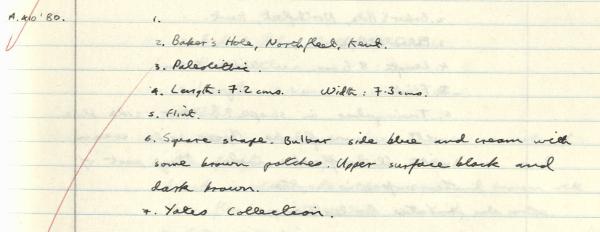 A.410'80. 1.
2. Baker's Hole, Northfleet, Kent.
3. Paleolithic.
4. Length: 7.2 cms. Width: 7.3 cms.
5. Flint.
6. Square shape. Bulbar side blue and cream with
some brown patches. Upper surface black and
dark brown.
7. Yates Collection.